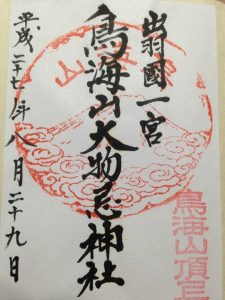 出羽國一宮
鳥海山大物忌神社
平成二十七年八月二十九日
鳥海山頂